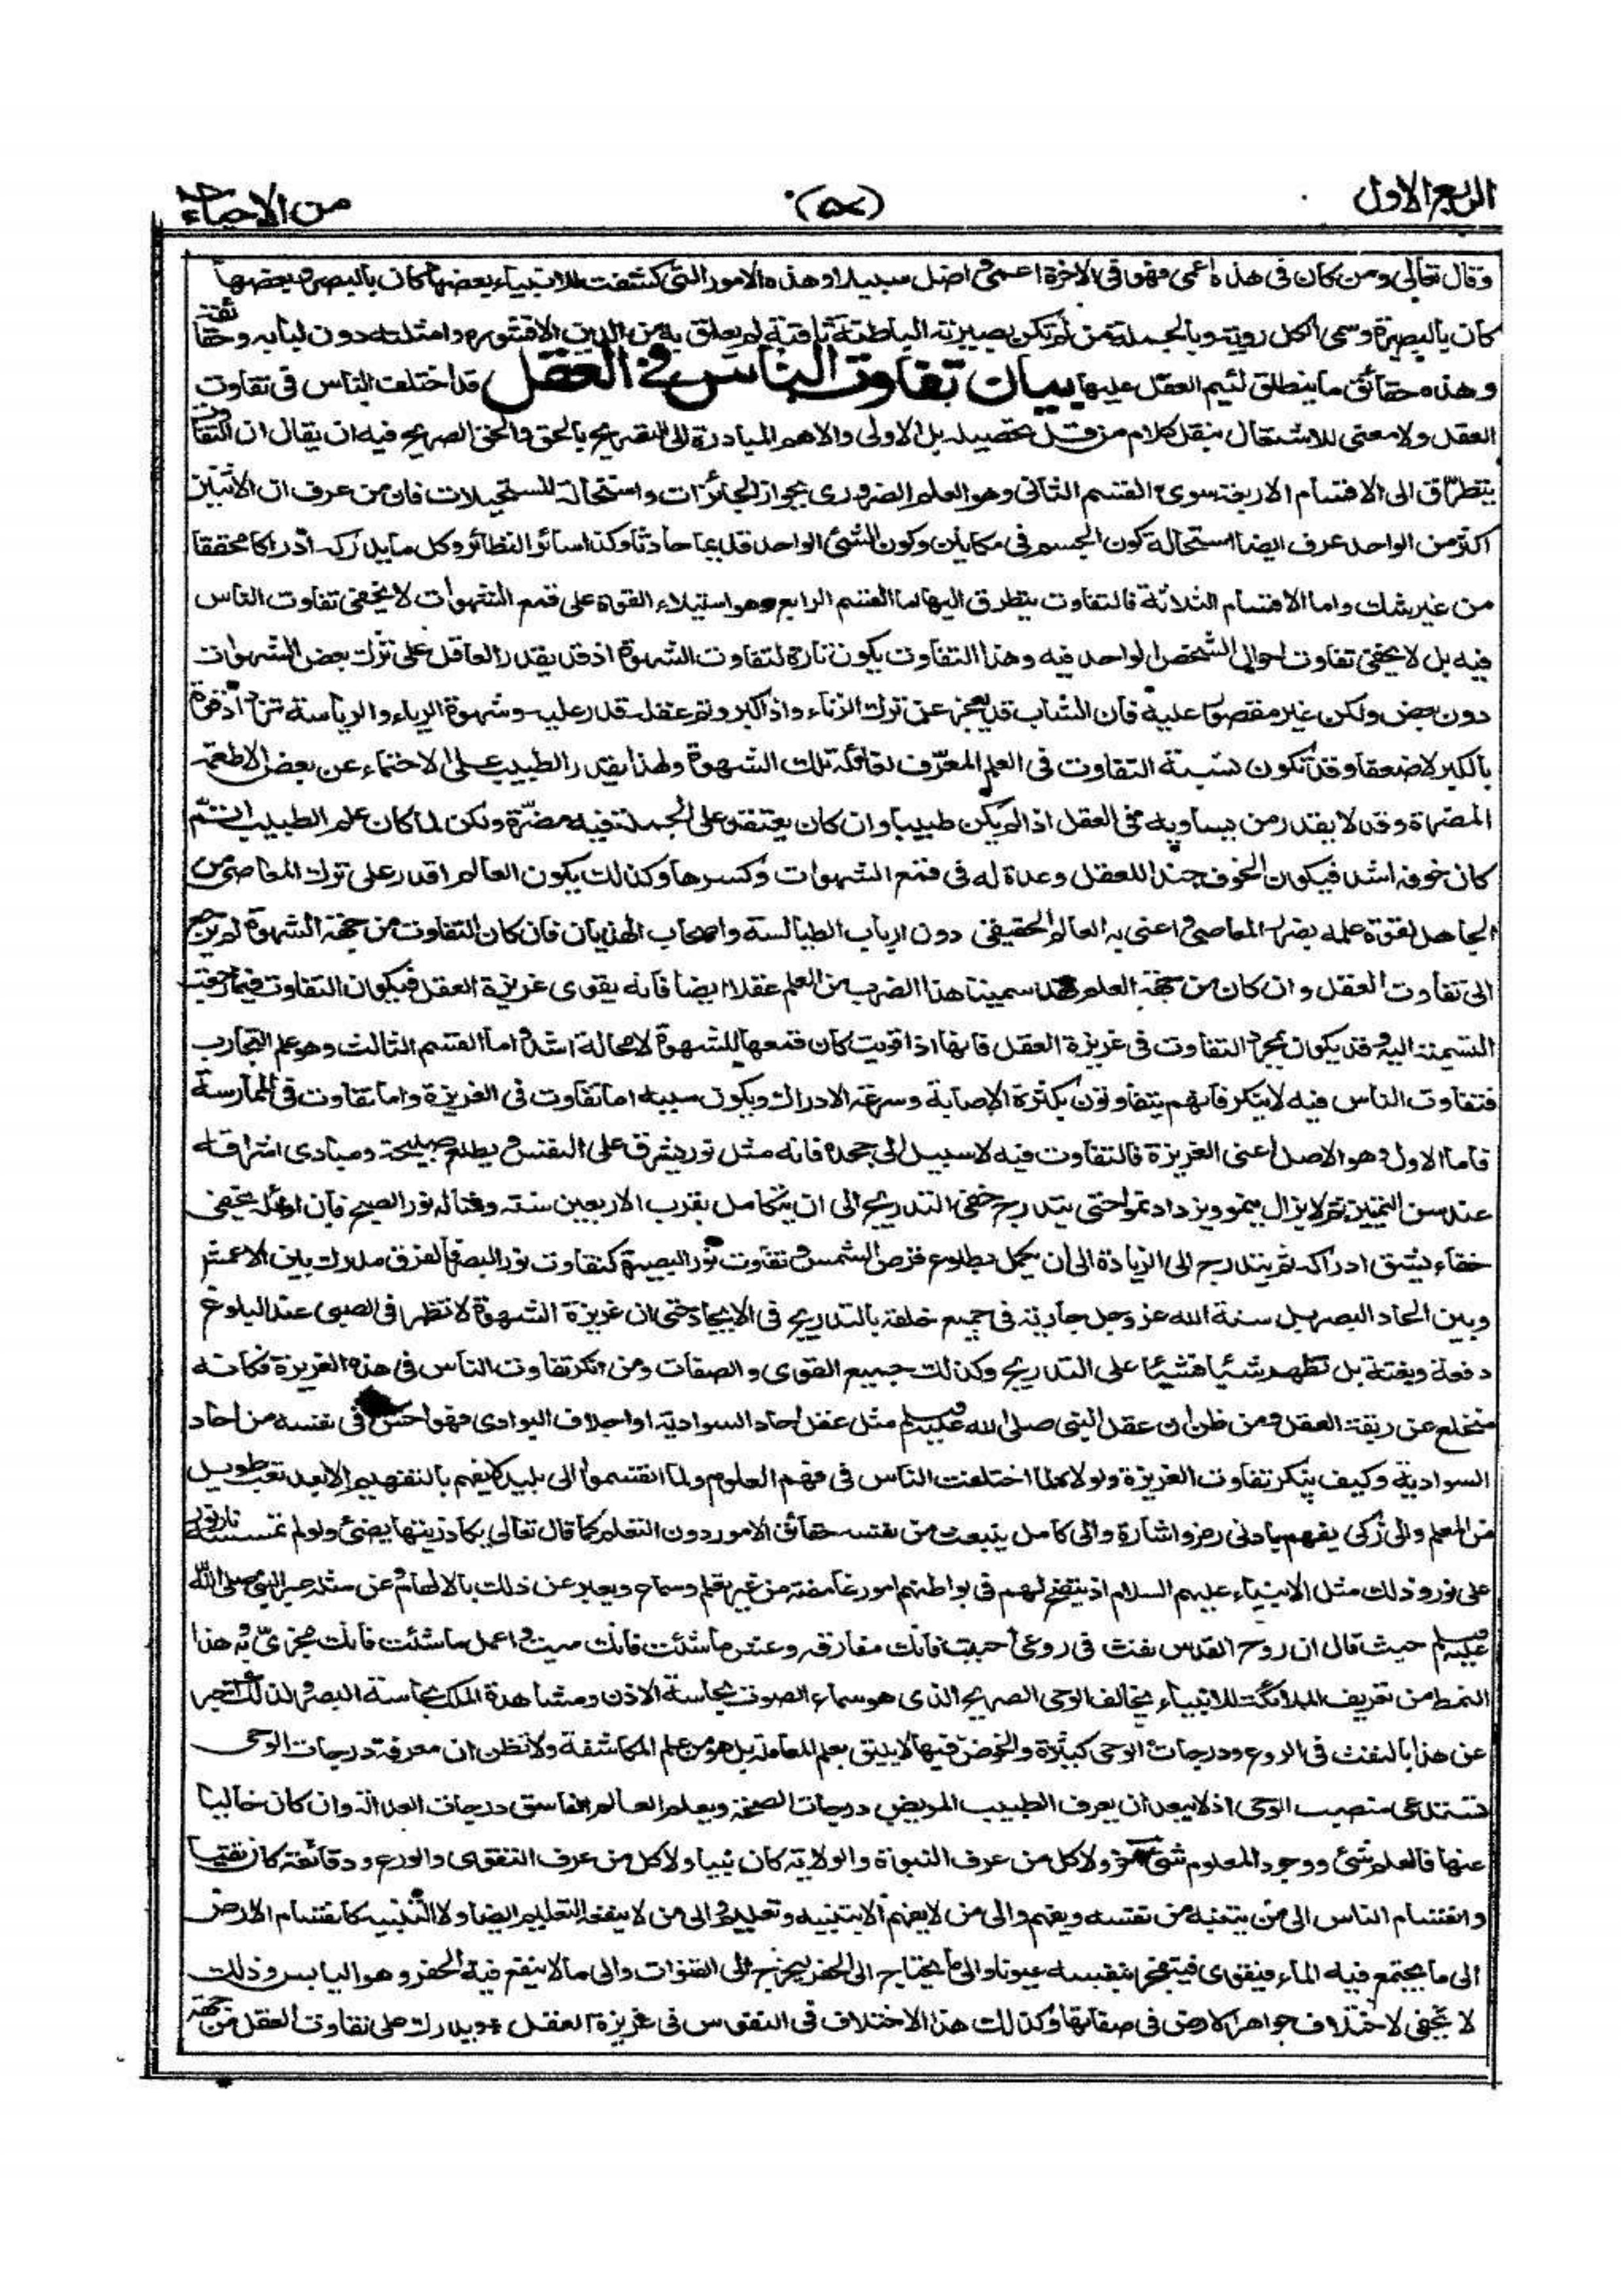 الربع الاول
(٥٨)
من الاحياء
وقال تعالى ومن كان فى هذه اعمى فهو فى الاخرة اعمى واضل سبيلا وهذه الامور التى كشفت للانبياء بعضها كان بالبصر وبعضها
كان بالبصيرة وسمى الكل رؤية وبالجملة من لم تكن بصيرته الباطنة ثاقبة لم يعلق به من الدين الا قشوره وامثلته دون لبابه وحقائقه
وهذه حقائق ما ينطلق اسم العقل عليها بيان تفاوت الناس فى العقل قد اختلف الناس فى تفاوت
العقل ولا معنى للاشتغال بنقل كلام من قل تحصيله بل الاولى والاهم المبادرة الى التصريح بالحق والحق الصريح فيه ان يقال ان التفاوت
يتطرق الى الاقسام الاربعة سوى القسم الثانى وهو العلم الضرورى بجواز الجائزات واستحالة المستحيلات فان من عرف ان الاثنين
اكثر من الواحد عرف ايضا استحالة كون الجسم فى مكانين وكون الشئ الواحد قديما حادثا وكذا سائر النظائر وكل ما يدركه ادراكا محققا
من غير شك واما الاقسام الثلاثة فالتفاوت يتطرق اليها اما القسم الرابع وهو استيلاء القوة على قمع الشهوات لا يخفى تفاوت الناس
فيه بل لا يخفى تفاوت احوال الشخص الواحد فيه وهذا التفاوت يكون تارة لتفاوت الشهوة اذ قد يقدر العاقل على ترك بعض الشهوات
دون بعض ولكن غير مقصور عليه فان الشاب قد يعجز عن ترك الزناء واذا كبر وتم عقله قدر عليه وشهوة الرياء والرياسة تزداد قوة
بالكبر لا ضعفا وقد تكون نسبة التفاوت فى العلم المعرف لغائلة تلك الشهوة ولهذا يقدر الطبيب على الاحتماء عن بعض الاطعمة
المضرة وقد لا يقدر من يساويه فى العقل اذا لم يكن طبيبا وان كان يعتقد على الجملة فيه مضرة ولكن لما كان علم الطبيب اتم
كان خوفه اشد فيكون الخوف جندا للعقل وعدة له فى قمع الشهوات وكسرها وكذلك يكون العالم اقدر على ترك المعاصى من
الجاهل لقوة علمه بضرر المعاصى واعنى به العالم الحقيقى دون ارباب الطيالسة واصحاب الهذيان فان كان التفاوت من جهة الشهوة لم يرجع
الى تفاوت العقل وان كان من جهة العلم فقد سمينا هذا الضرب من العلم عقلا ايضا فانه يقوى غريزة العقل فيكون التفاوت فيما رجعت
التسمية اليه وقد يكون بمجرد التفاوت فى غريزة العقل فانها اذا قويت كان قمعها للشهوة لا محالة اشد واما القسم الثالث وهو علم التجارب
فتفاوت الناس فيه لا ينكر فانهم يتفاوتون بكثرة الاصابة وسرعة الادراك ويكون سببه اما تفاوت فى الغريزة واما تفاوت فى الممارسة
فاما الاول وهو الاصل اعنى الغريزة فالتفاوت فيه لا سبيل الى جحده فانه مثل نور يشرق على النفس ويطلع صبيحته ومبادى اشراقه
عند سن التمييز ثم لا يزال ينمو ويزداد نموا حتى يتدرج خفى التدريج الى ان يتكامل بقرب الاربعين سنة ومثاله نور الصبح فان اوائله يخفى
خفاء يشق ادراكه ثم يتدرج الى الزيادة الى ان يكمل بطلوع قرص الشمس وتفاوت نور البصيرة كتفاوت نور البصر فالفرق مدرك بين الاعمش
وبين الحاد البصر بل سنة الله عز وجل جارية فى جميع خلقه بالتدريج فى الايجاد حتى ان غريزة الشهوة لا تظهر فى الصبى عند البلوغ
دفعة وبغتة بل تظهر شيئا فشيئا على التدريج وكذلك جميع القوى والصفات ومن انكر تفاوت الناس فى هذه الغريزة فكانه
منخلع عن ربقة العقل ومن ظن ان عقل النبى صلى الله عليه وسلم مثل عقل احاد السوادية واجلاف البوادى فهو اخس فى نفسه من احاد
السوادية وكيف ينكر تفاوت الغريزة ولولاه لما اختلفت الناس فى فهم العلوم ولما انقسموا الى بليد لا يفهم بالتفهيم الا بعد تعب طويل
من المعلم والى زكى يفهم بادنى رمز واشارة والى كامل ينبعث من نفسه حقائق الامور دون التعلم كما قال تعالى يكاد زيتها يضئ ولو لم تمسسه نار نور
على نور وذلك مثل الانبياء عليهم السلام اذ يتضح لهم فى بواطنهم امور غامضة من غير تعلم وسماع ويعبر عن ذلك بالالهام وعن مثله عبر النبى صلى الله
عليه وسلم حيث قال ان روح القدس نفث فى روعى احبب فانك مفارقه وعش ما شئت فانك ميت واعمل ما شئت فانك مجزى به هذا
النمط من تعريف الملائكة للانبياء يخالف الوحى الصريح الذى هو سماع الصوت بحاسة الاذن ومشاهدة الملك بحاسة البصر ولذلك اخبر
عن هذا بالنفث فى الروع ودرجات الوحى كثيرة والخوض فيها لا يليق بعلم المعاملة بل هو من علم المكاشفة ولا تظن ان معرفة درجات الوحى
تستدعى منصب الوحى اذ لا يبعد ان يعرف الطبيب المريض درجات الصحة ويعلم العالم الفاسق درجات العدالة وان كان خاليا
عنها فالعلم شئ ووجود المعلوم شئ اخر ولا كل من عرف النبوة والولاية كان نبيا ولا كل من عرف التقوى والورع ودقائقه كان تقيا
وانقسام الناس الى من يتنبه من نفسه ويفهم والى من لا يفهم الا بتنبيه وتعليم والى من لا ينفعه التعليم ايضا ولا التنبيه كانقسام الارض
الى ما يجتمع فيه الماء فيقوى فيتفجر بنفسه عيونا والى ما يحتاج الى الحفر ليخرج الى القنوات والى ما لا ينفع فيه الحفر وهو اليابس وذلك
لا يخفى لاختلاف جواهر الارض فى صفاتها وكذلك هذا الاختلاف فى النفوس فى غريزة العقل ويدلك على تفاوت العقل من جهة